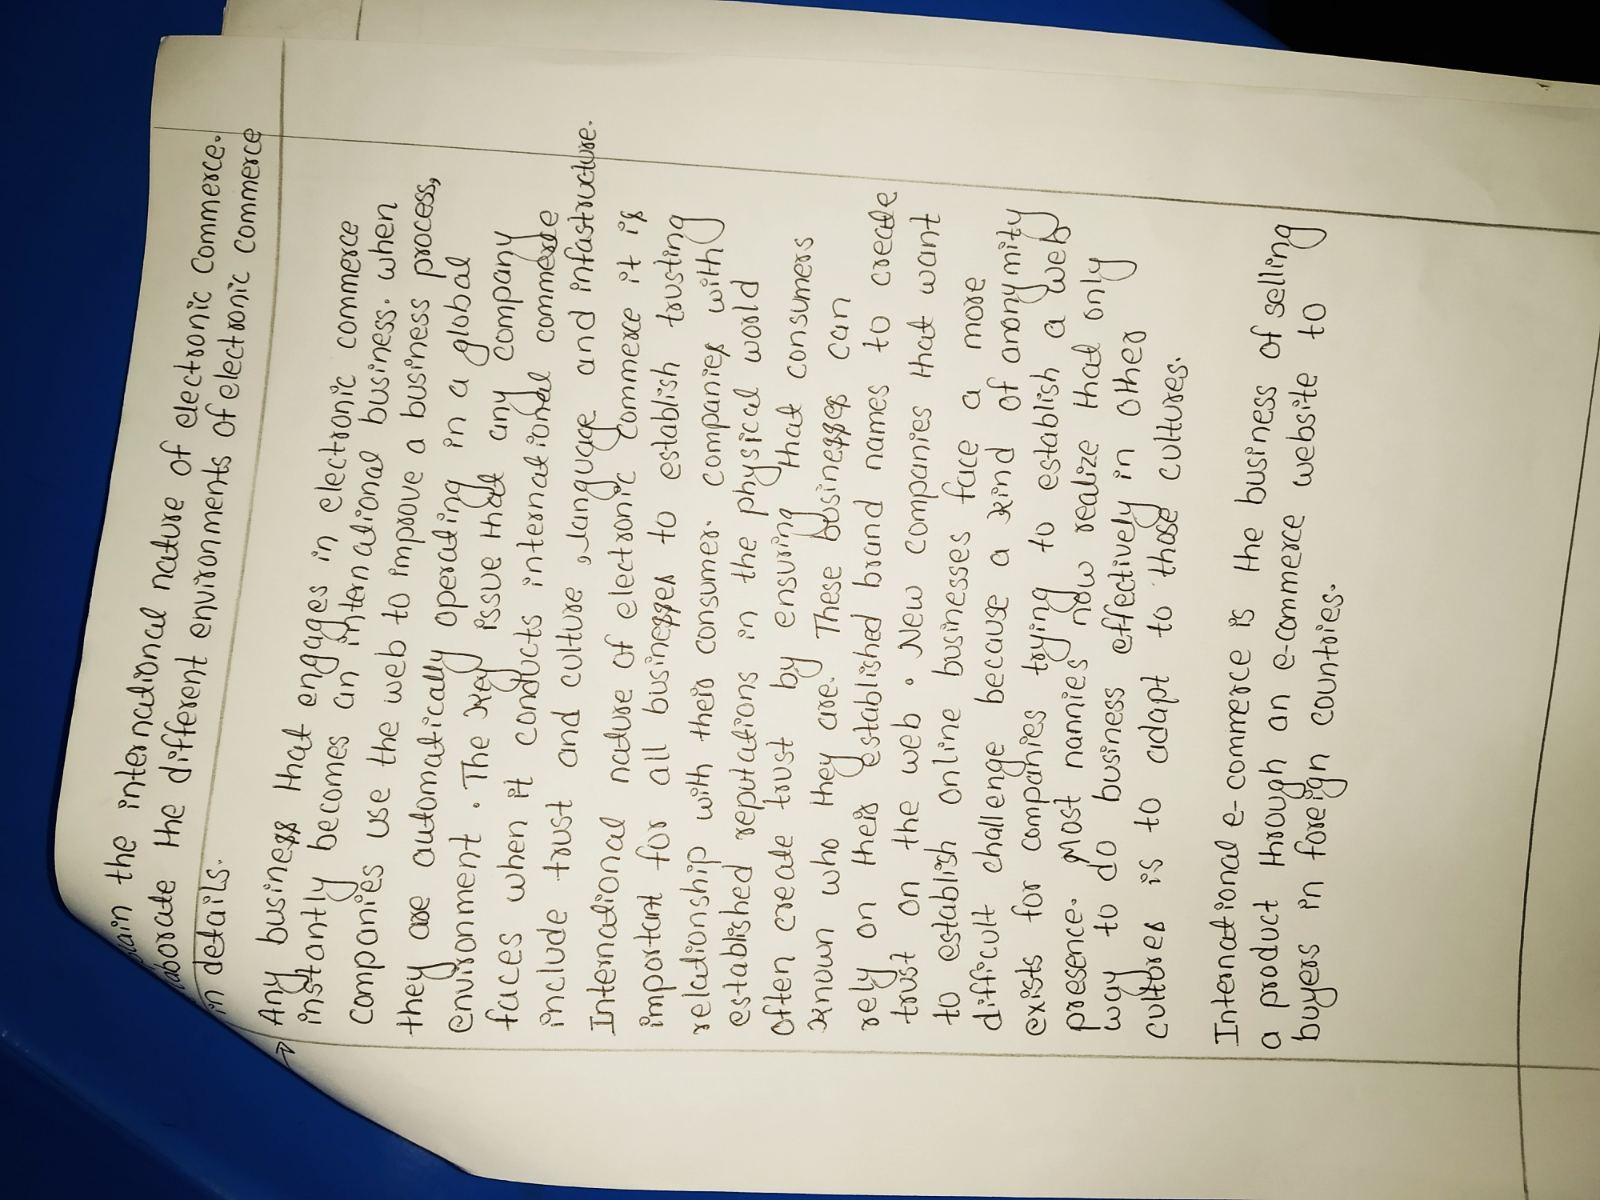 lain the international nature of electronic commerce.
laborate the different environments of electronic commerce
in details.
→ Any business that engages in electronic commerce
instantly becomes an international business. when
companies use the web to improve a business process,
they are automatically operating in a global
environment. The key issue that any company
faces when it conducts international commerce
include trust and culture, language and infastructure.
International nature of electronic commerce it is
important for all businesses to establish trusting
relationship with their consumer. companies with
established reputations in the physical world
often create trust by ensuring that consumers
known who they are. These businesses can
rely on their established brand names to create
trust on the web. New companies that want
to establish online businesses face a more
difficult challenge because a kind of anonymity
exists for companies trying to establish a web
presence. Most nannies now realize that only
way to do business effectively in other
cultures is to adapt to those cultures.
International e-commerce is the business of selling
a product through an e-commerce website to
buyers in foreign countries.